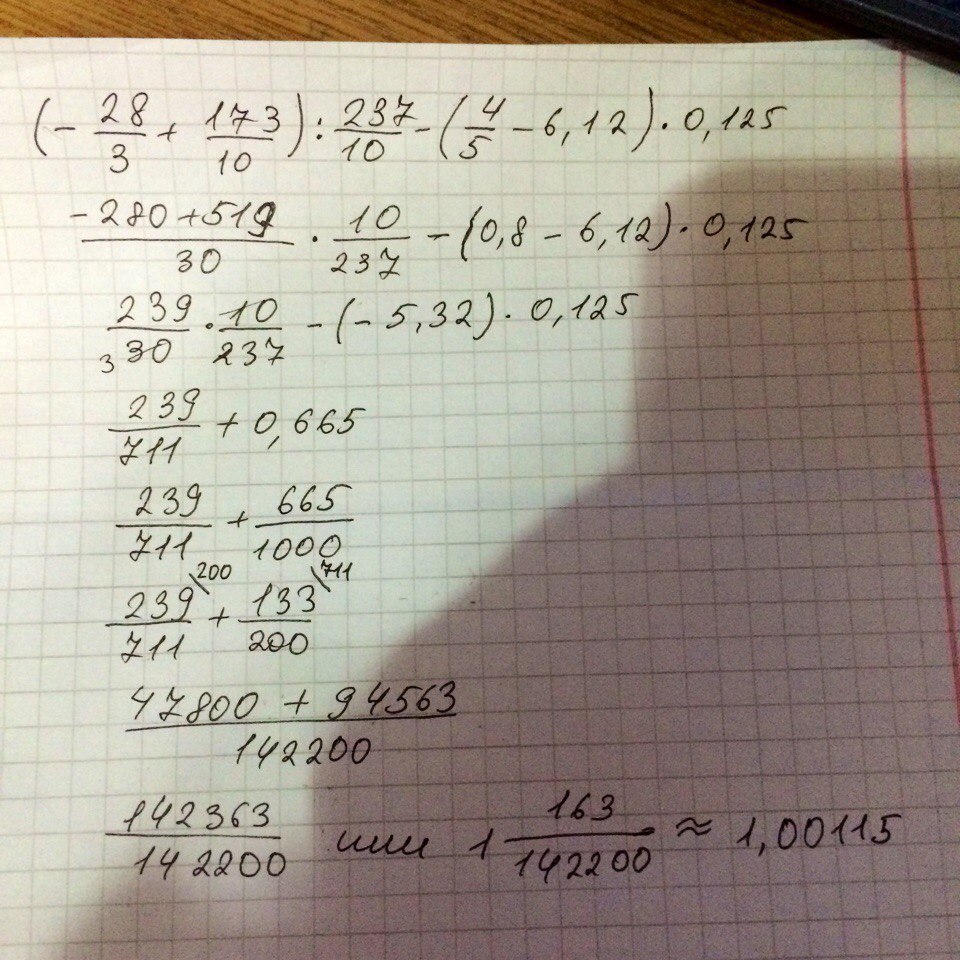 (- 28/3 + 173/10) : 237/10 - (4/5 - 6,12) · 0,125
-280+519/30 · 10/237 - (0,8 - 6,12) · 0,125
239/30 3 · 10/237 - (-5,32) · 0,125
239/711 + 0,665
239/711 + 665/1000
239/711 \200 + 133/200 \711
47800 + 94563/142200
142363/142200 или 1 163/142200 ≈ 1,00115